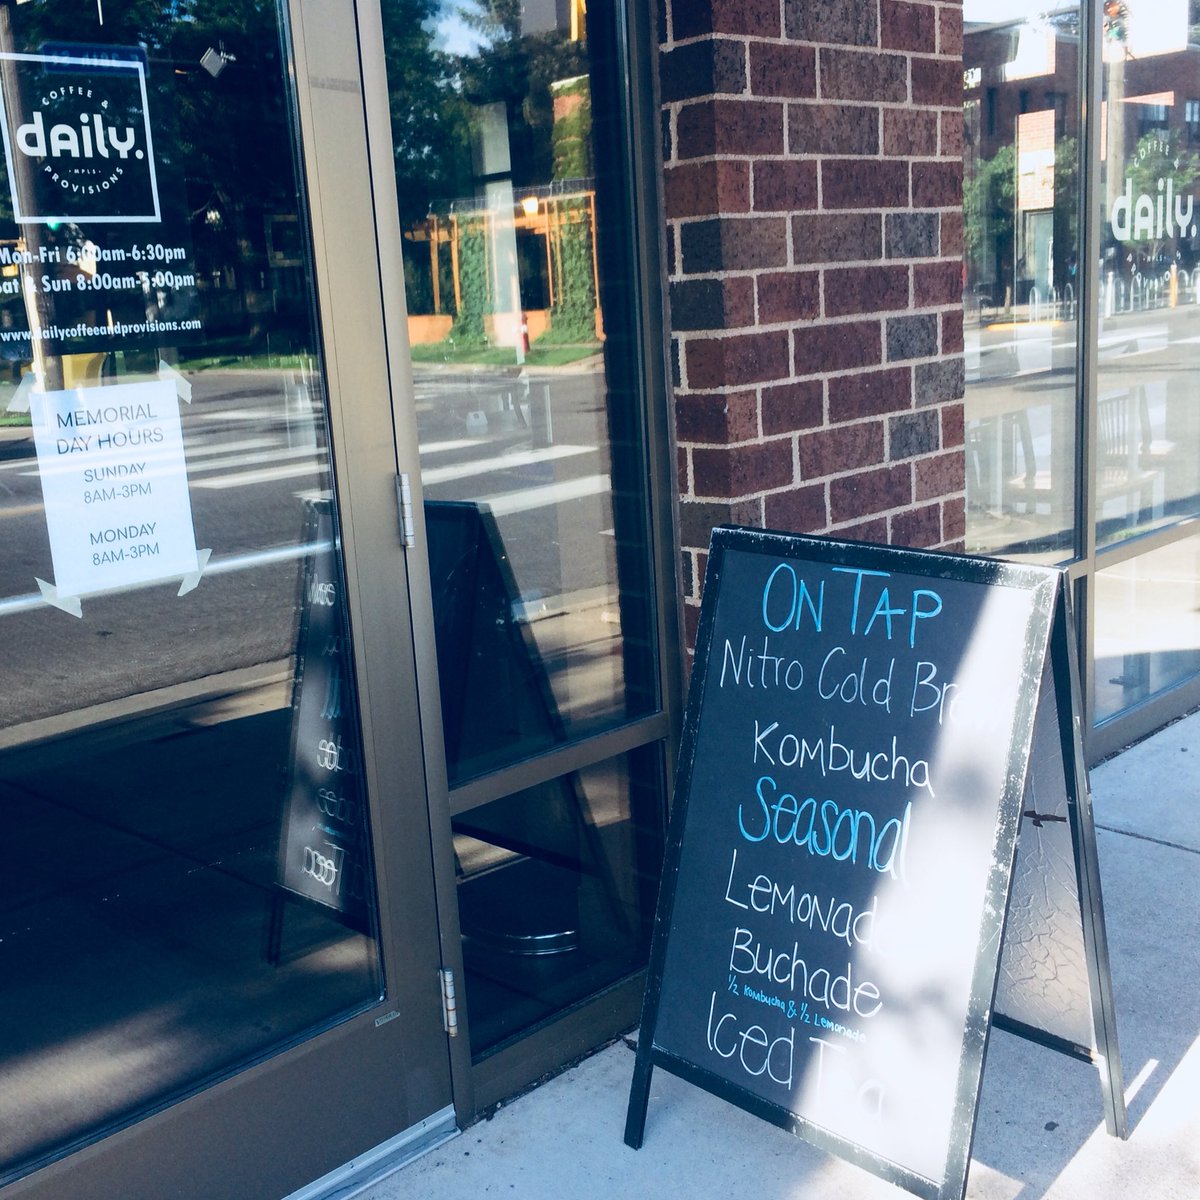 COFFEE &
daily.
MPLS
PROVISIONS
Mon-Fri 6:00am-6:30pm
Sat & Sun 8:00am-5:00pm
www.dailycoffeeandprovisions.com
MEMORIAL
DAY HOURS
SUNDAY
8AM-3PM
MONDAY
8AM-3PM
ON TAP
Nitro Cold Brew
Kombucha
Seasonal
Lemonade
Buchade
1/2 Kombucha & 1/2 Lemonade
Iced Tea
COFFEE &
daily.